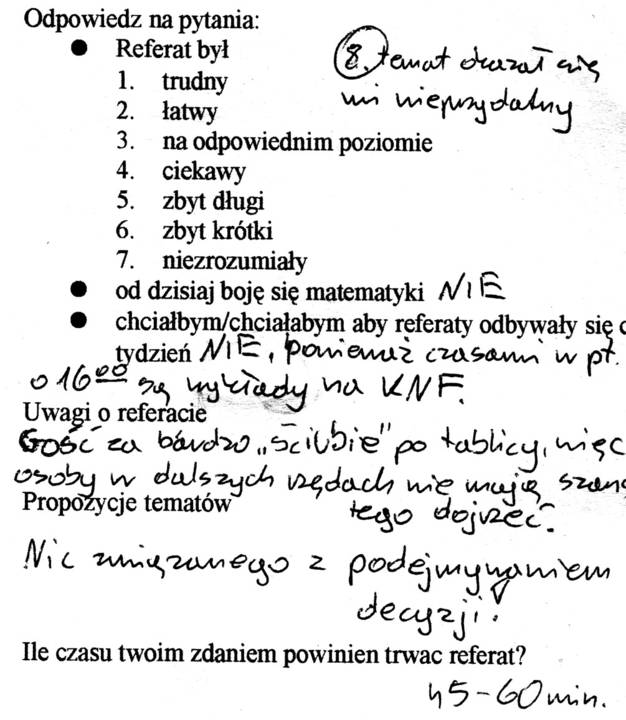 Odpowiedz na pytania:
● Referat był
1. trudny
2. łatwy
3. na odpowiednim poziomie
4. ciekawy
5. zbyt długi
6. zbyt krótki
7. niezrozumiały
8. temat okazał się
mi nieprzydatny
● od dzisiaj boję się matematyki NIE
● chciałbym/chciałabym aby referaty odbywały się c
tydzień NIE, ponieważ czasami w pt.
o 16⁰⁰ są wykłady na KNF.
Uwagi o referacie
Gość za bardzo „ścibie" po tablicy, więc
osoby w dalszych rzędach nie mają szans
tego dojrzeć.
Propozycje tematów
Nic związanego z podejmowaniem
decyzji!
Ile czasu twoim zdaniem powinien trwac referat?
45-60 min.